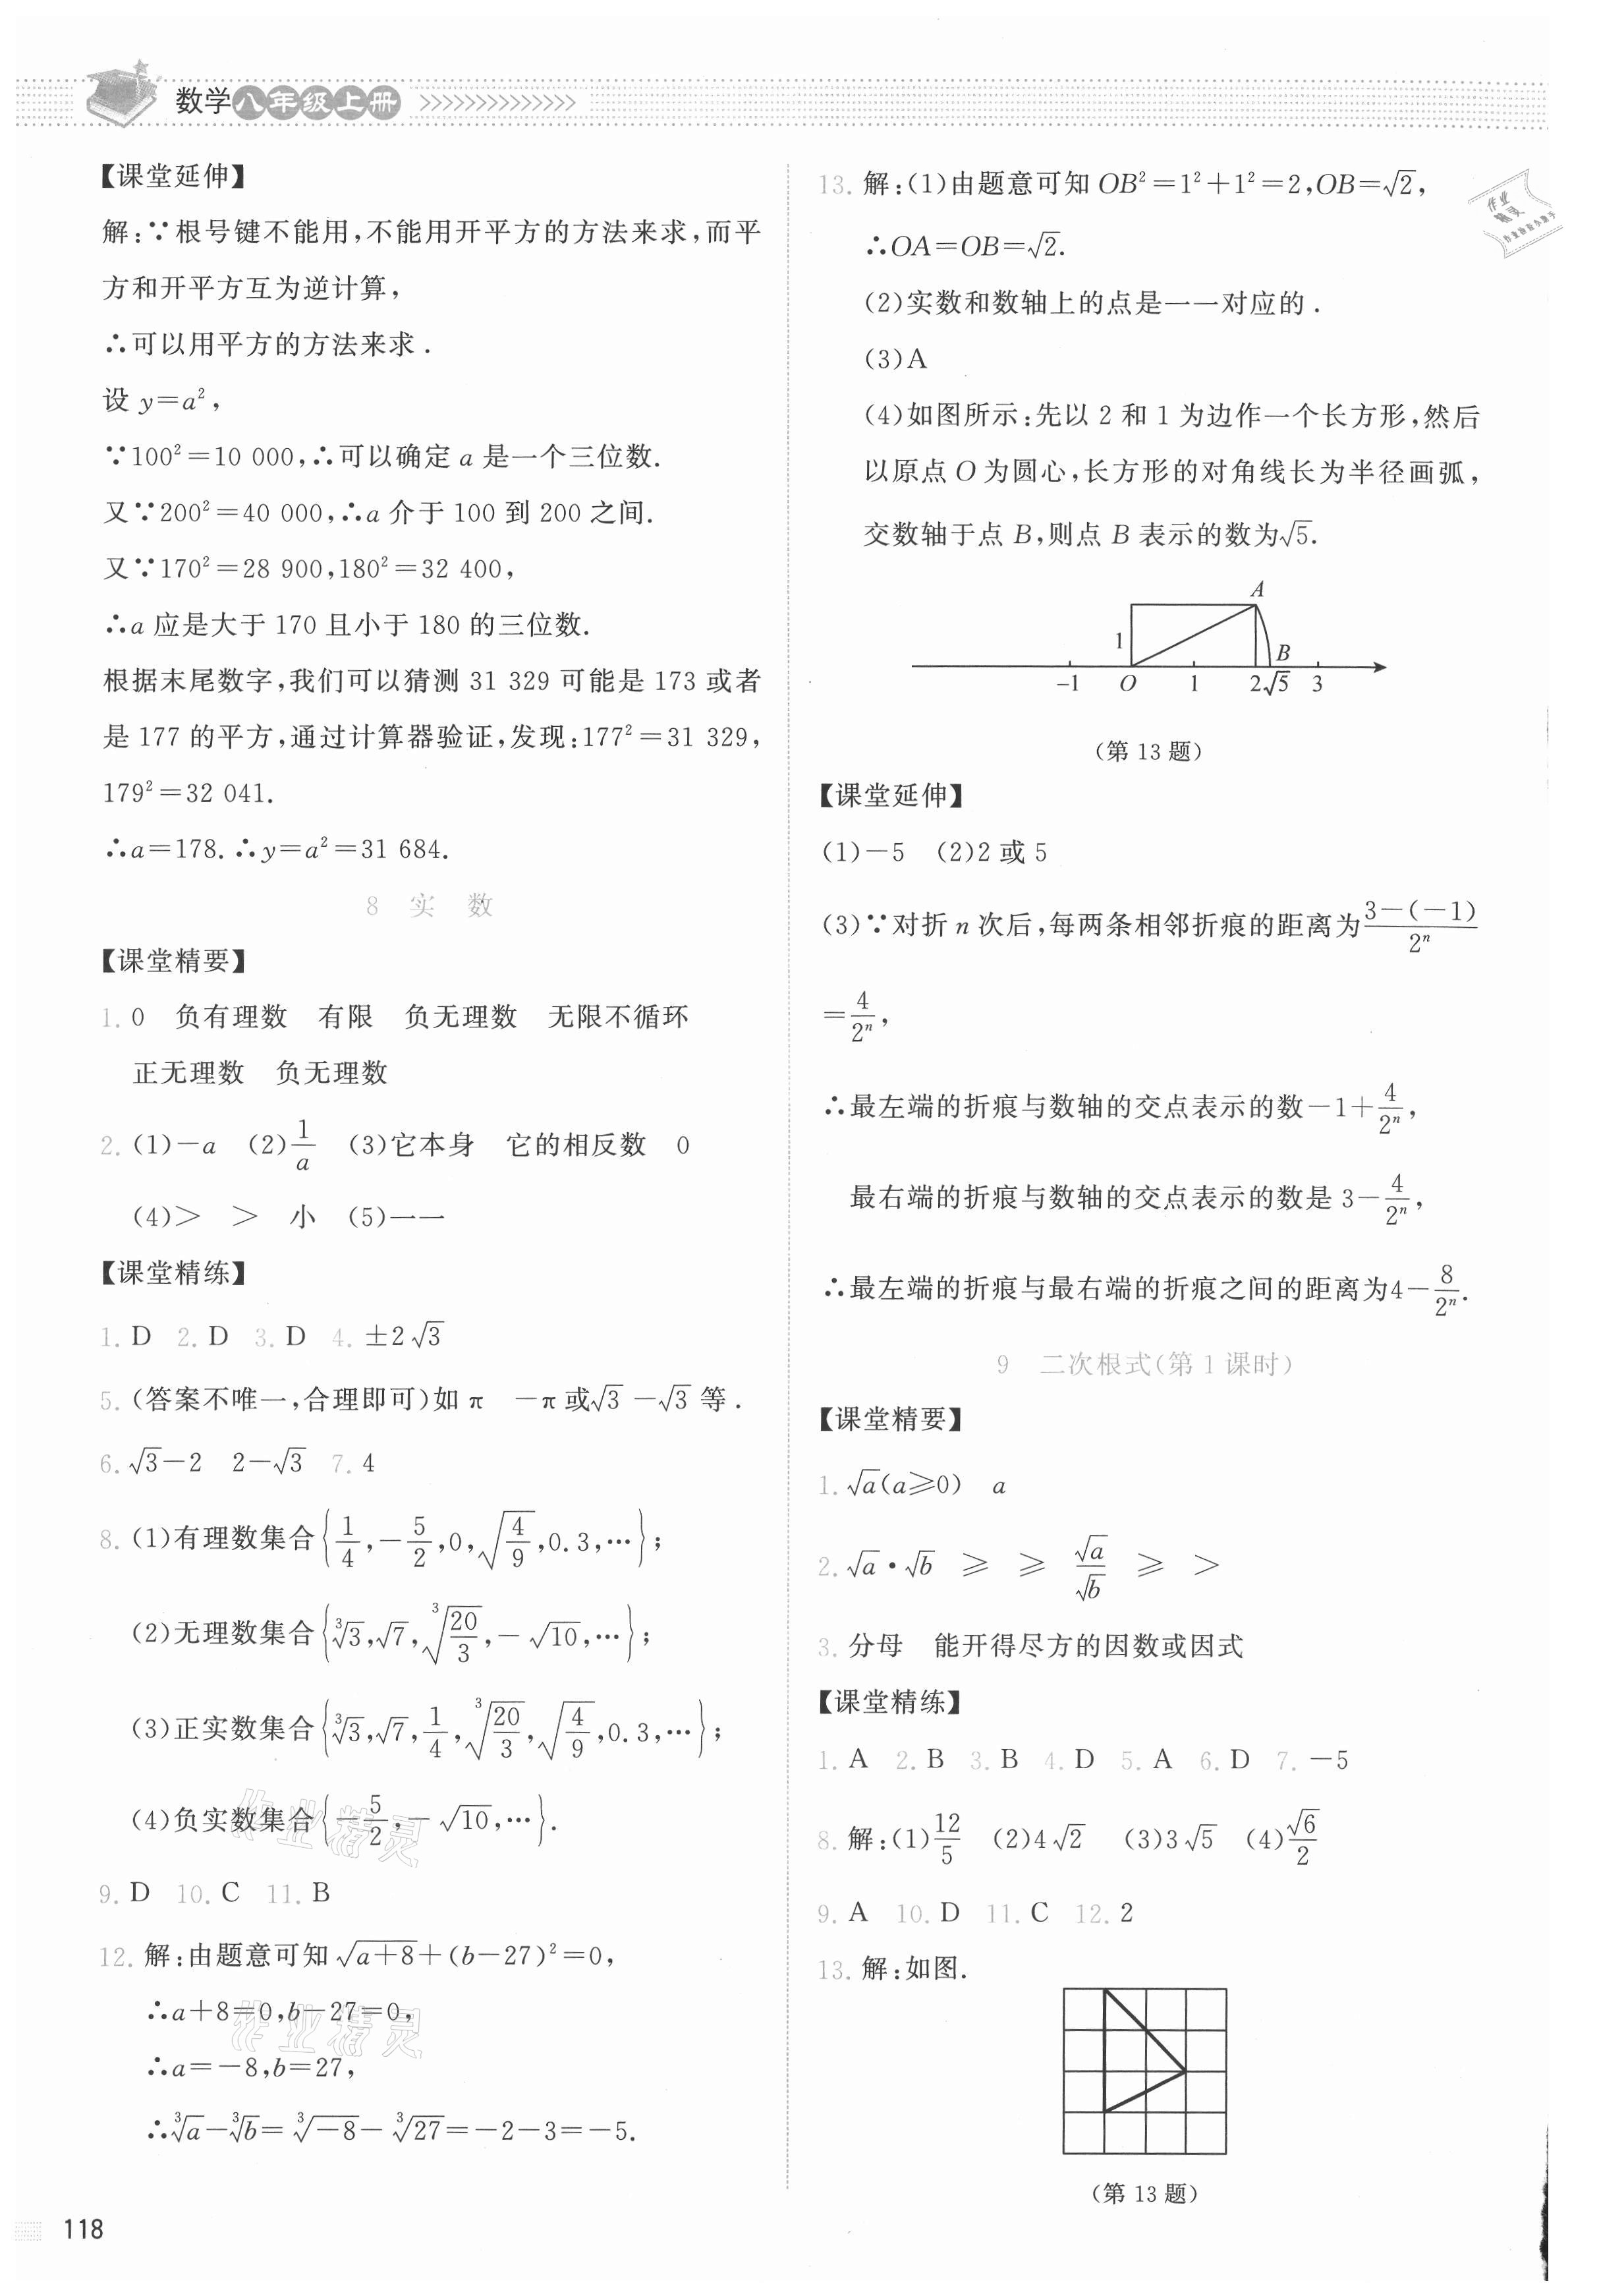 数学八年级上册
【课堂延伸】
解:∵根号键不能用,不能用开平方的方法来求,而平
方和开平方互为逆计算,
∴可以用平方的方法来求.
设 y=a²,
∵100²=10 000,∴可以确定 a 是一个三位数.
又∵200²=40 000,∴a 介于 100 到 200 之间.
又∵170²=28 900,180²=32 400,
∴a 应是大于 170 且小于 180 的三位数.
根据末尾数字,我们可以猜测 31 329 可能是 173 或者
是 177 的平方,通过计算器验证,发现:177²=31 329,
179²=32 041.
∴a=178.∴y=a²=31 684.
8 实 数
【课堂精要】
1. 0 负有理数 有限 负无理数 无限不循环
正无理数 负无理数
2. (1)-a (2)1/a (3)它本身 它的相反数 0
(4)> > 小 (5)一一
【课堂精练】
1. D 2. D 3. D 4. ±2√3
5. (答案不唯一,合理即可)如 π -π或√3 -√3 等.
6. √3-2 2-√3 7. 4
8. (1)有理数集合{1/4,-5/2,0,√(4/9),0.3,…};
(2)无理数集合{∛3,√7,∛(20/3),-√10,…};
(3)正实数集合{∛3,√7,1/4,∛(20/3),√(4/9),0.3,…};
(4)负实数集合{-5/2,-√10,…}.
9. D 10. C 11. B
12. 解:由题意可知√(a+8)+(b-27)²=0,
∴a+8=0,b-27=0,
∴a=-8,b=27,
∴∛a-∛b=∛(-8)-∛27=-2-3=-5.
118
13. 解:(1)由题意可知 OB²=1²+1²=2,OB=√2,
∴OA=OB=√2.
(2)实数和数轴上的点是一一对应的.
(3)A
(4)如图所示:先以 2 和 1 为边作一个长方形,然后
以原点 O 为圆心,长方形的对角线长为半径画弧,
交数轴于点 B,则点 B 表示的数为√5.
A
1
B
-1 O 1 2 √5 3
(第 13 题)
【课堂延伸】
(1)-5 (2)2 或 5
(3)∵对折 n 次后,每两条相邻折痕的距离为(3-(-1))/2ⁿ
=4/2ⁿ,
∴最左端的折痕与数轴的交点表示的数-1+4/2ⁿ,
最右端的折痕与数轴的交点表示的数是 3-4/2ⁿ,
∴最左端的折痕与最右端的折痕之间的距离为4-8/2ⁿ.
9 二次根式(第 1 课时)
【课堂精要】
1. √a(a≥0) a
2. √a·√b ≥ ≥ √a/√b ≥ >
3. 分母 能开得尽方的因数或因式
【课堂精练】
1. A 2. B 3. B 4. D 5. A 6. D 7. -5
8. 解:(1)12/5 (2)4√2 (3)3√5 (4)√6/2
9. A 10. D 11. C 12. 2
13. 解:如图.
(第 13 题)
作业精灵
作业精灵